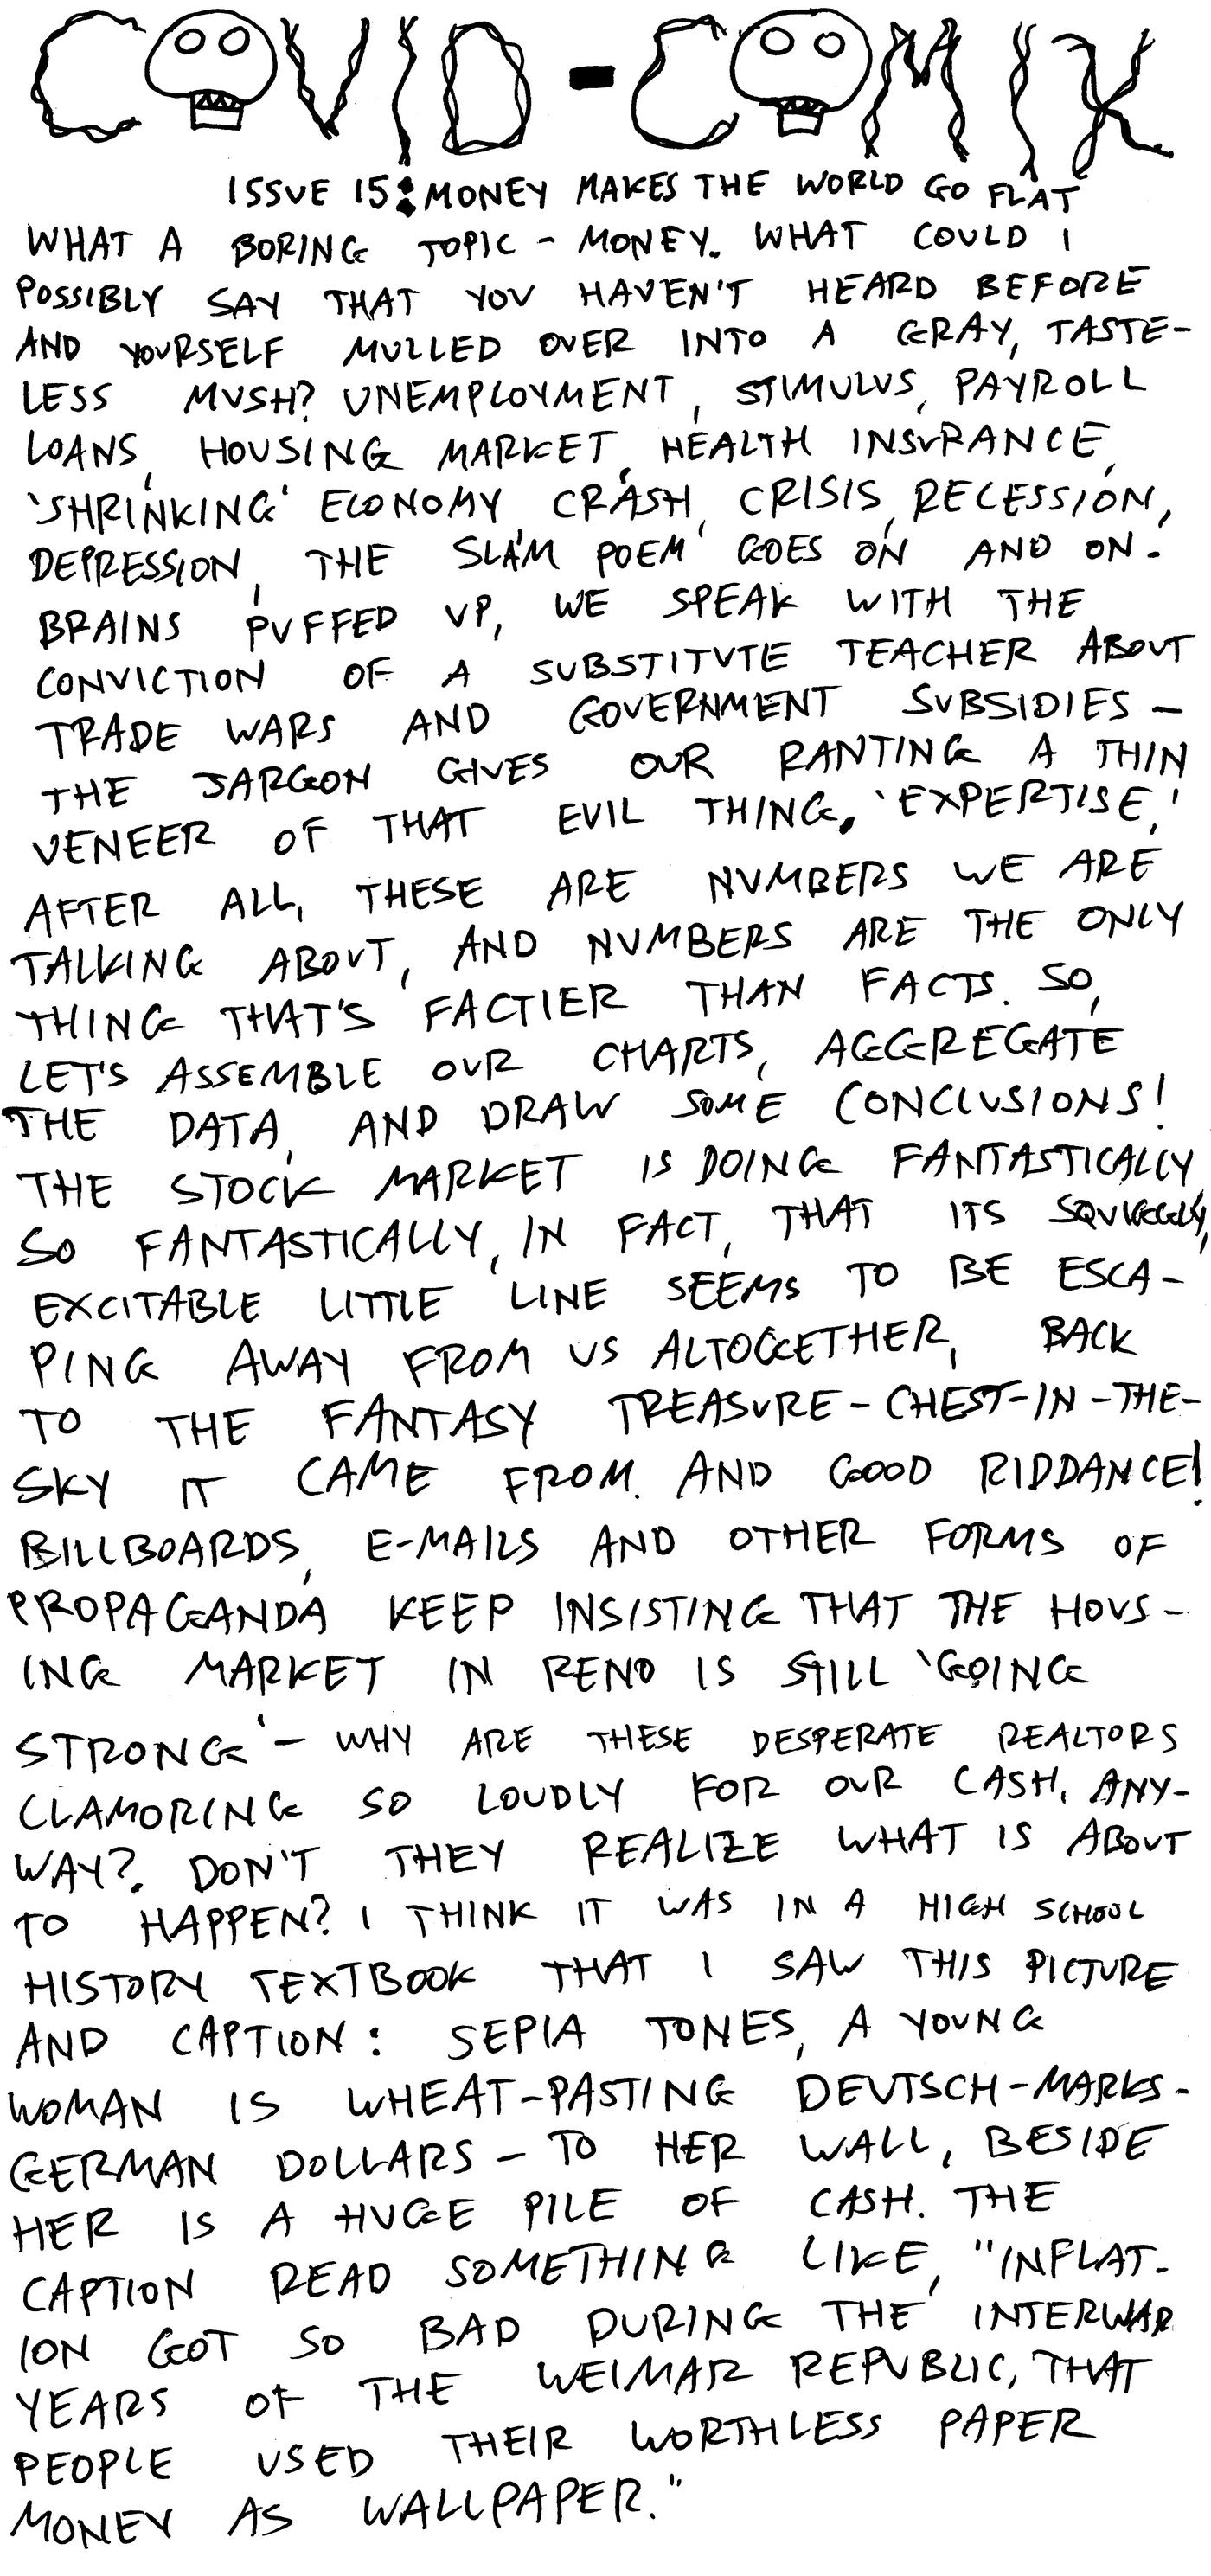 COVID-COMIX
ISSUE 15: MONEY MAKES THE WORLD GO FLAT
WHAT A BORING TOPIC - MONEY. WHAT COULD I
POSSIBLY SAY THAT YOU HAVEN'T HEARD BEFORE
AND YOURSELF MULLED OVER INTO A GRAY, TASTE-
LESS MUSH? UNEMPLOYMENT, STIMULUS, PAYROLL
LOANS, HOUSING MARKET, HEALTH INSURANCE,
'SHRINKING' ECONOMY, CRASH, CRISIS, RECESSION,
DEPRESSION, THE SLAM POEM GOES ON AND ON.
BRAINS PUFFED UP, WE SPEAK WITH THE
CONVICTION OF A SUBSTITUTE TEACHER ABOUT
TRADE WARS AND GOVERNMENT SUBSIDIES -
THE JARGON GIVES OUR RANTING A THIN
VENEER OF THAT EVIL THING, 'EXPERTISE.'
AFTER ALL, THESE ARE NUMBERS WE ARE
TALKING ABOUT, AND NUMBERS ARE THE ONLY
THING THAT'S FACTIER THAN FACTS. SO,
LET'S ASSEMBLE OUR CHARTS, AGGREGATE
THE DATA, AND DRAW SOME CONCLUSIONS!
THE STOCK MARKET IS DOING FANTASTICALLY
SO FANTASTICALLY, IN FACT, THAT ITS SQUIGGLY,
EXCITABLE LITTLE LINE SEEMS TO BE ESCA-
PING AWAY FROM US ALTOGETHER, BACK
TO THE FANTASY TREASURE-CHEST-IN-THE-
SKY IT CAME FROM. AND GOOD RIDDANCE!
BILLBOARDS, E-MAILS AND OTHER FORMS OF
PROPAGANDA KEEP INSISTING THAT THE HOUS-
ING MARKET IN RENO IS STILL 'GOING
STRONG' - WHY ARE THESE DESPERATE REALTORS
CLAMORING SO LOUDLY FOR OUR CASH, ANY-
WAY? DON'T THEY REALIZE WHAT IS ABOUT
TO HAPPEN? I THINK IT WAS IN A HIGH SCHOOL
HISTORY TEXTBOOK THAT I SAW THIS PICTURE
AND CAPTION: SEPIA TONES, A YOUNG
WOMAN IS WHEAT-PASTING DEUTSCH-MARKS-
GERMAN DOLLARS - TO HER WALL, BESIDE
HER IS A HUGE PILE OF CASH. THE
CAPTION READ SOMETHING LIKE, "INFLAT-
ION GOT SO BAD DURING THE INTERWAR
YEARS OF THE WEIMAR REPUBLIC, THAT
PEOPLE USED THEIR WORTHLESS PAPER
MONEY AS WALLPAPER."